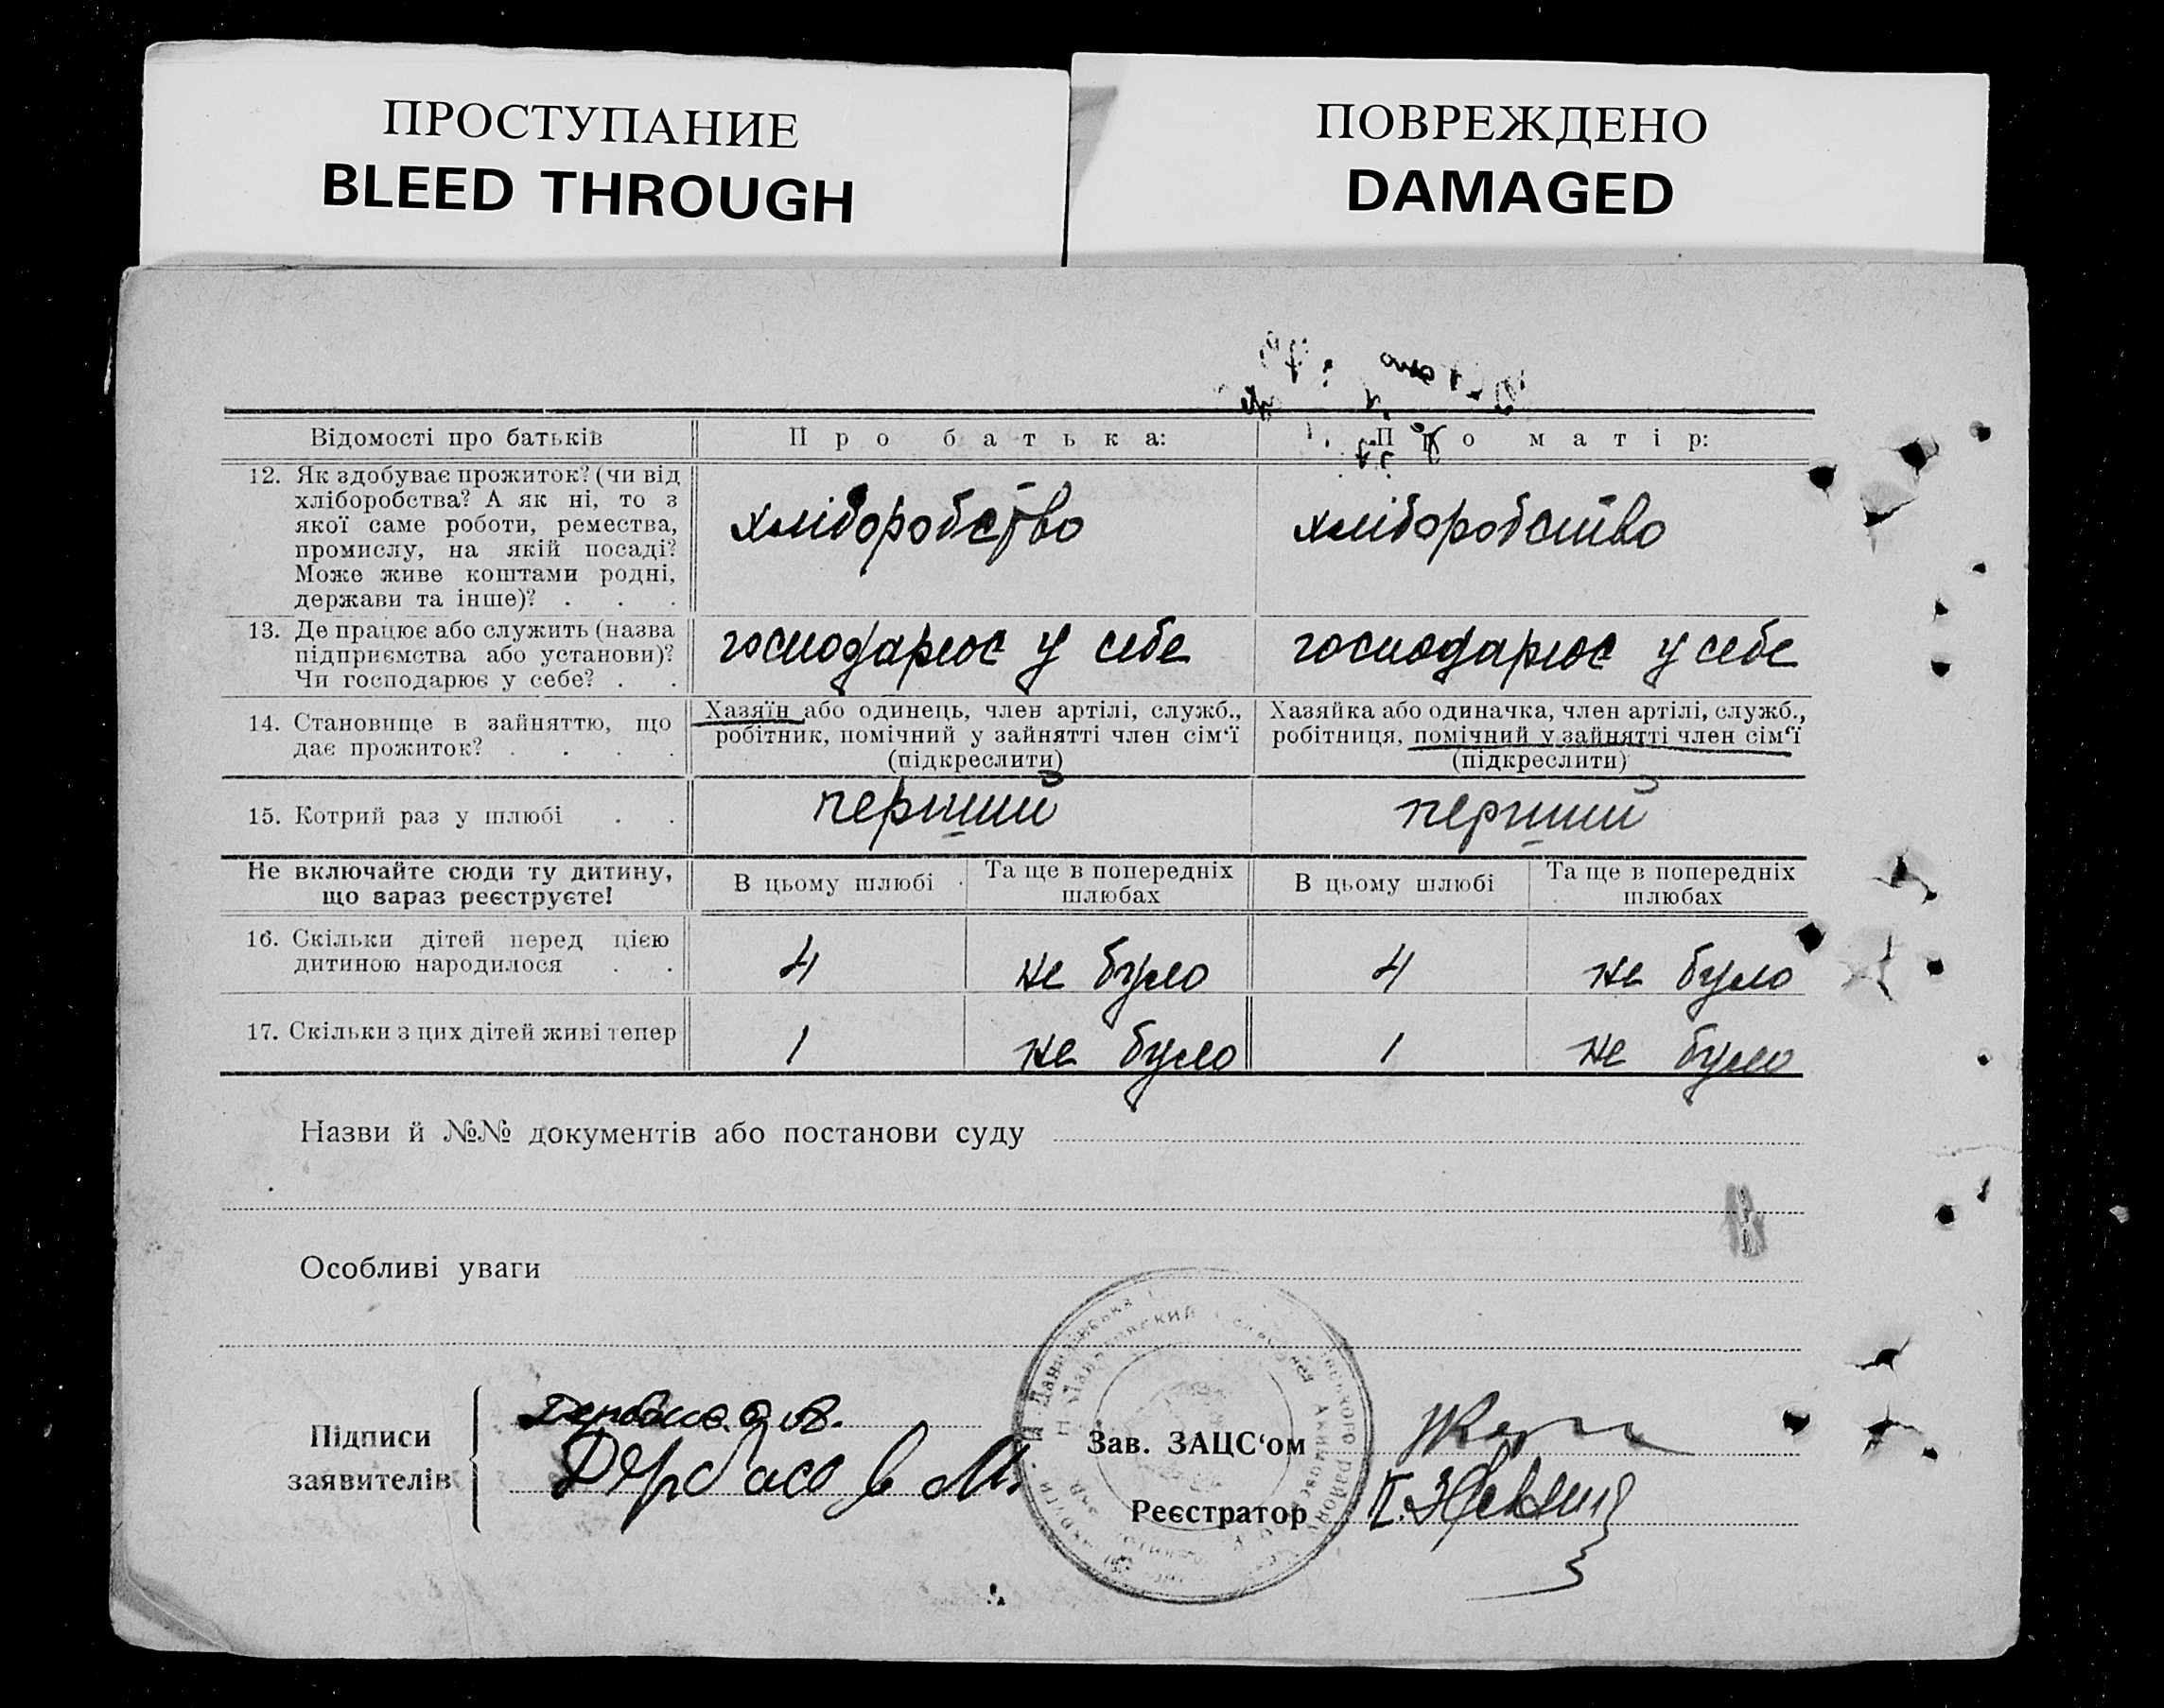 ПРОСТУПАНИЕ
BLEED THROUGH
ПОВРЕЖДЕНО
DAMAGED
Відомості про батьків
Про батька:
Про матір:
12. Як здобуває прожиток? (чи від
хліборобства? А як ні, то з
якої саме роботи, ремества,
промислу, на якій посаді?
Може живе коштами родні,
держави та інше)? . . .
хліборобство
хліборобство
13. Де працює або служить (назва
підприємства або установи)?
Чи господарює у себе? . .
господарює у себе
господарює у себе
14. Становище в зайняттю, що
дає прожиток? . . . .
Хазяїн або одинець, член артілі, служб.,
робітник, помічний у зайнятті член сім‘ї
(підкреслити)
Хазяйка або одиначка, член артілі, служб.,
робітниця, помічний у зайнятті член сім‘ї
(підкреслити)
15. Котрий раз у шлюбі . .
перший
перший
Не включайте сюди ту дитину,
що зараз реєструєте!
В цьому шлюбі
Та ще в попередніх
шлюбах
В цьому шлюбі
Та ще в попередніх
шлюбах
16. Скільки дітей перед цією
дитиною народилося . .
4
не було
4
не було
17. Скільки з цих дітей живі тепер
1
не було
1
не було
Назви й №№ документів або постанови суду
Особливі уваги
Підписи
заявителів
Дербасов М.
Зав. ЗАЦС‘ом
Реєстратор